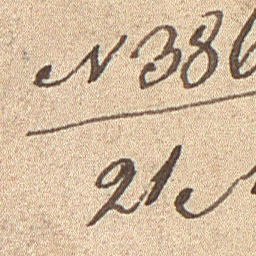 N 386
21